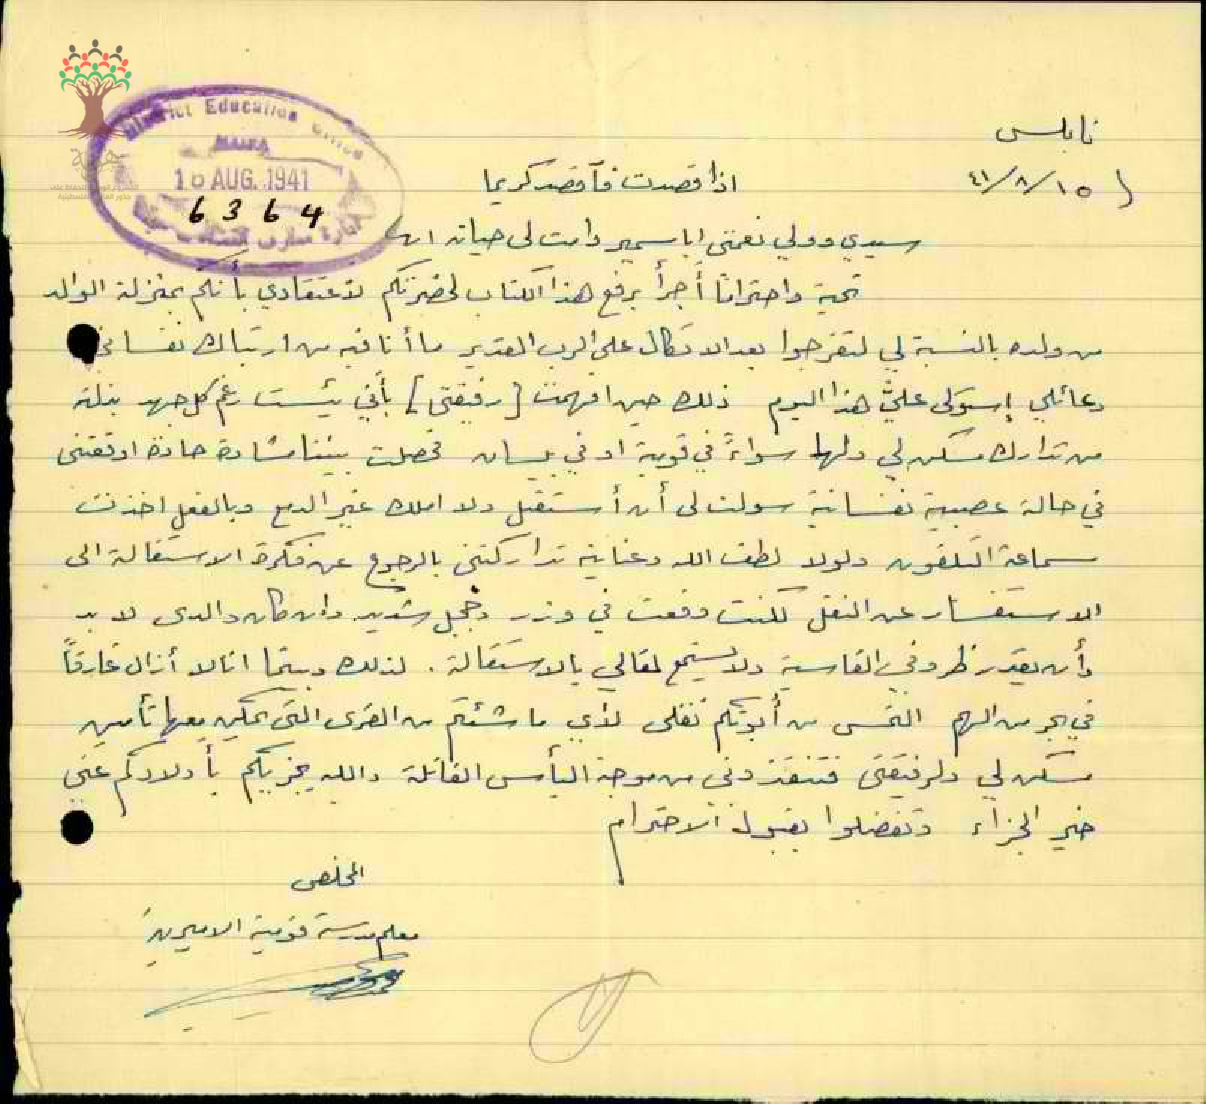 District Education Office
HAIFA
16 AUG. 1941
6364
نابلس
١٥/٨/٤١
اذا قصدت فاقصد كريما
سيدي وولي نعمتي ابا سمير دامت لي حياته
تحية واحتراما أجرأ برفع هذا الكتاب لحضرتكم لاعتقادي بأنكم بمنزلة الوالد
من ولده بالنسبة لي لتفرجوا بعد الاتكال على الرب القدير ما أنا فيه من ارتباك نفساني
وعائلي إستولى عليّ هذا اليوم ذلك حين افهمت [رفيقتي] بأني يئست رغم كل جهد بذلته
من تدارك مسكن لي ولها سواءً في قومية او في بيسان فحصلت بيننا مشادة حادة اوقفتني
في حالة عصبية نفسانية سولت لي أن أستقيل ولا املك غير الدمع وبالفعل اخذت
سماعة التلفون ولولا لطف الله وعناية تداركتني بالرجوع عن فكرة الاستقالة الى
الاستفسار عن النقل لكنت وقعت في وزر وخجل شديد وان كان والدي لا بد
وأن يقدر ظروفي القاسية ولا يسمح لمقالي بالاستقالة. لذلك وبينما انا لا أزال غارقاً
في بحر من الهم التمس من أبوتكم نقلي لأي ما شئتم من القرى التي يمكن معها تأمين
مسكن لي ولرفيقتي فتنقذوني من موجة اليأس القاتلة والله يجزيكم بأولادكم عني
خير الجزاء وتفضلوا بقبول الاحترام
المخلص
معلم مدرسة قومية الاميرية